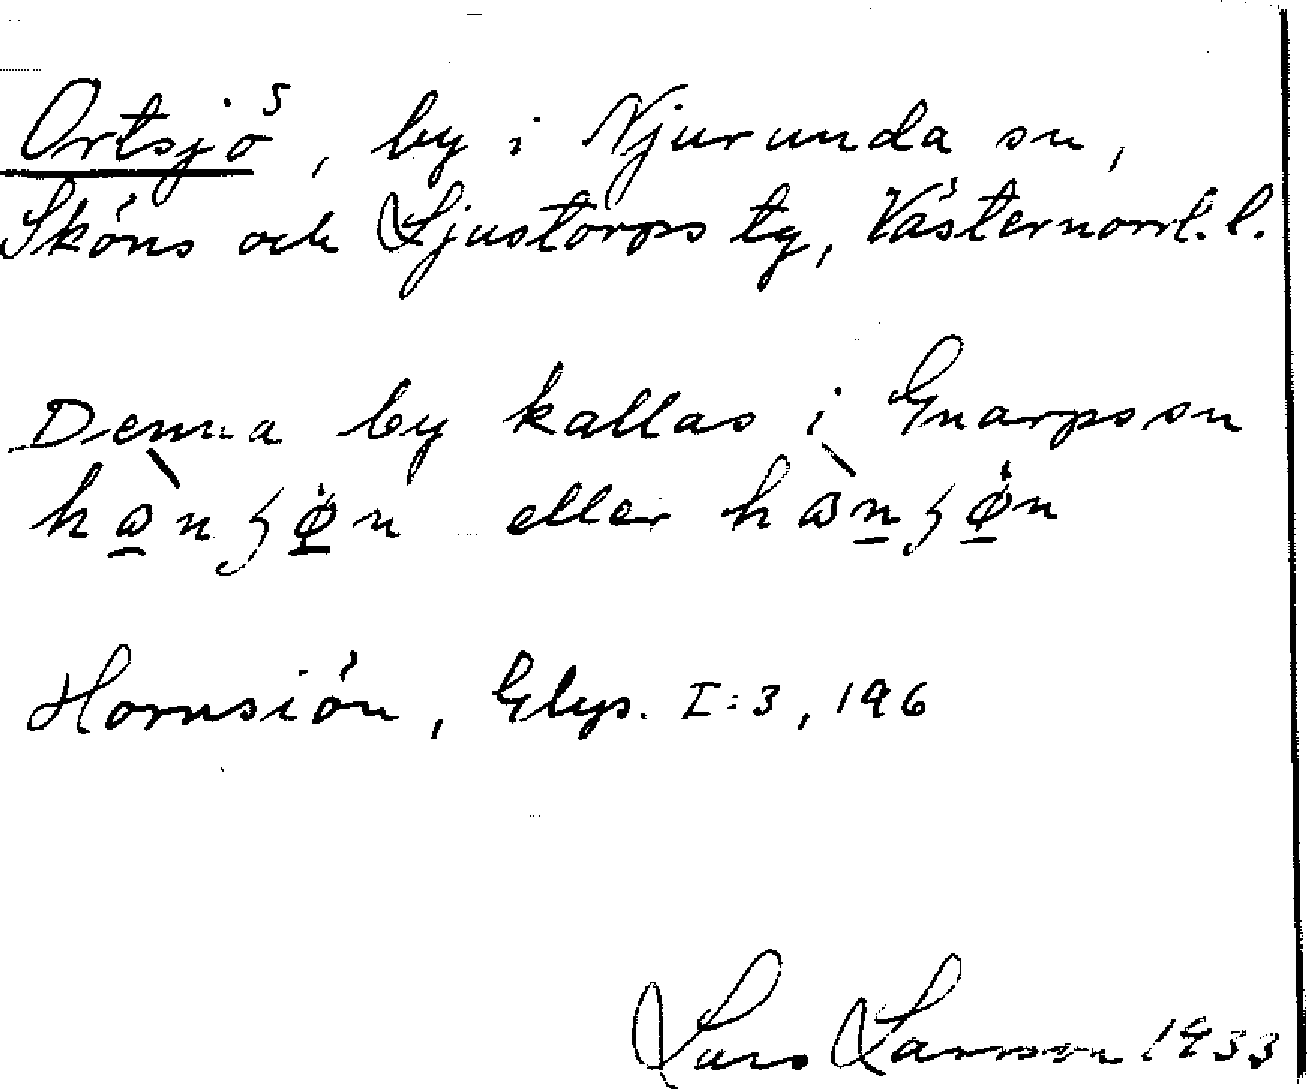 Ortsjö 5, by i Njurunda sn,
Sköns och Ljustorps tg, Västernorrl. l.
Denna by kallas i Gnarps sn
eller
Hornsiön, Glys. I:3, 196
Lars Larsson 1933